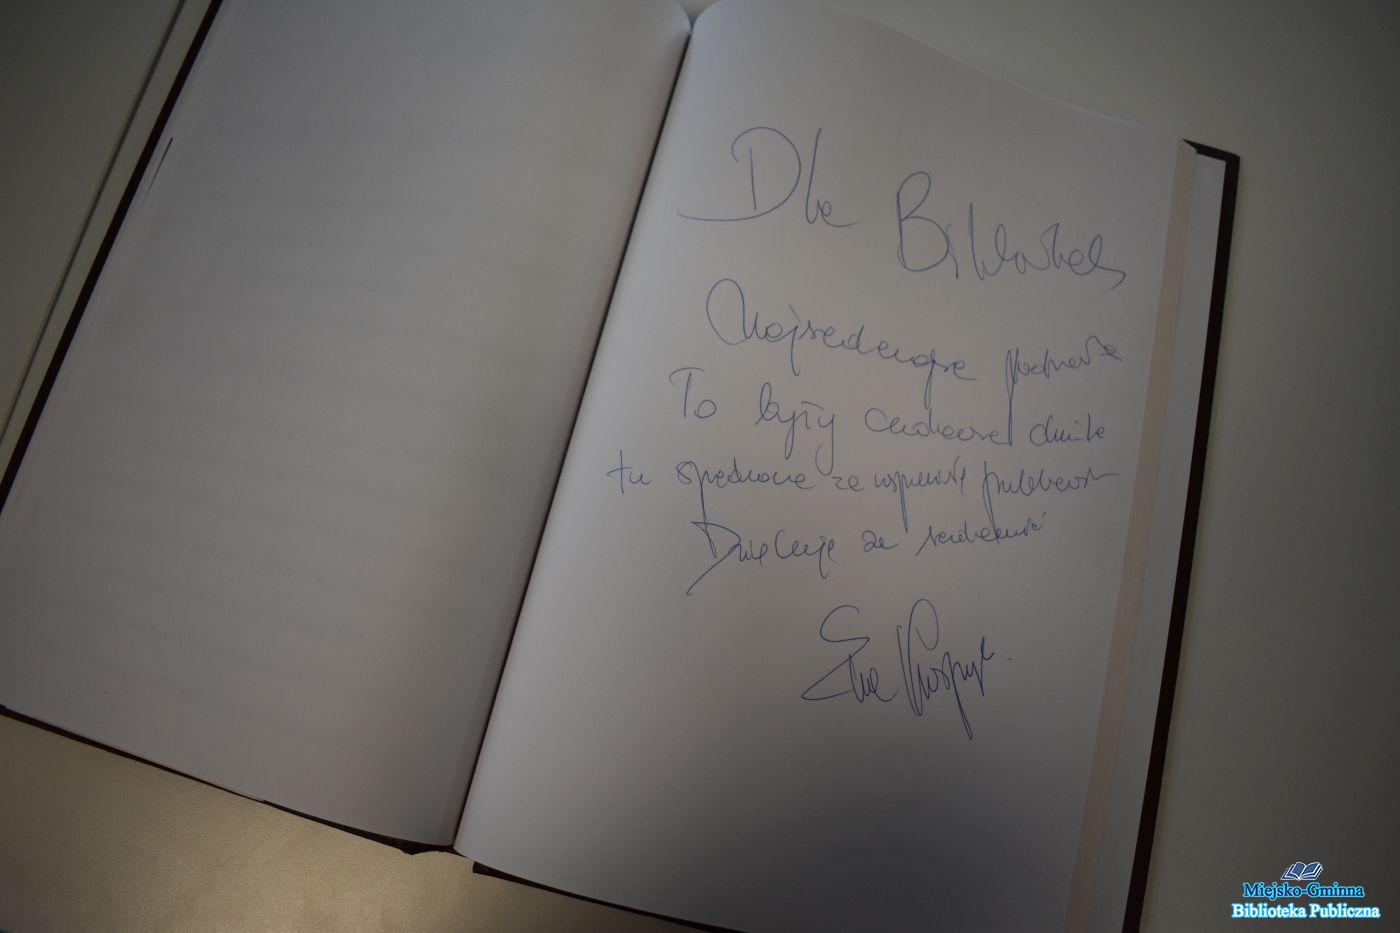 Dla Biblioteki
Najserdeczniejsze
To były cudowne chwile
tu spędzone ze wspaniałą publicznością
Dziękuję za serdeczność
Ewa
Miejsko-Gminna
Biblioteka Publiczna